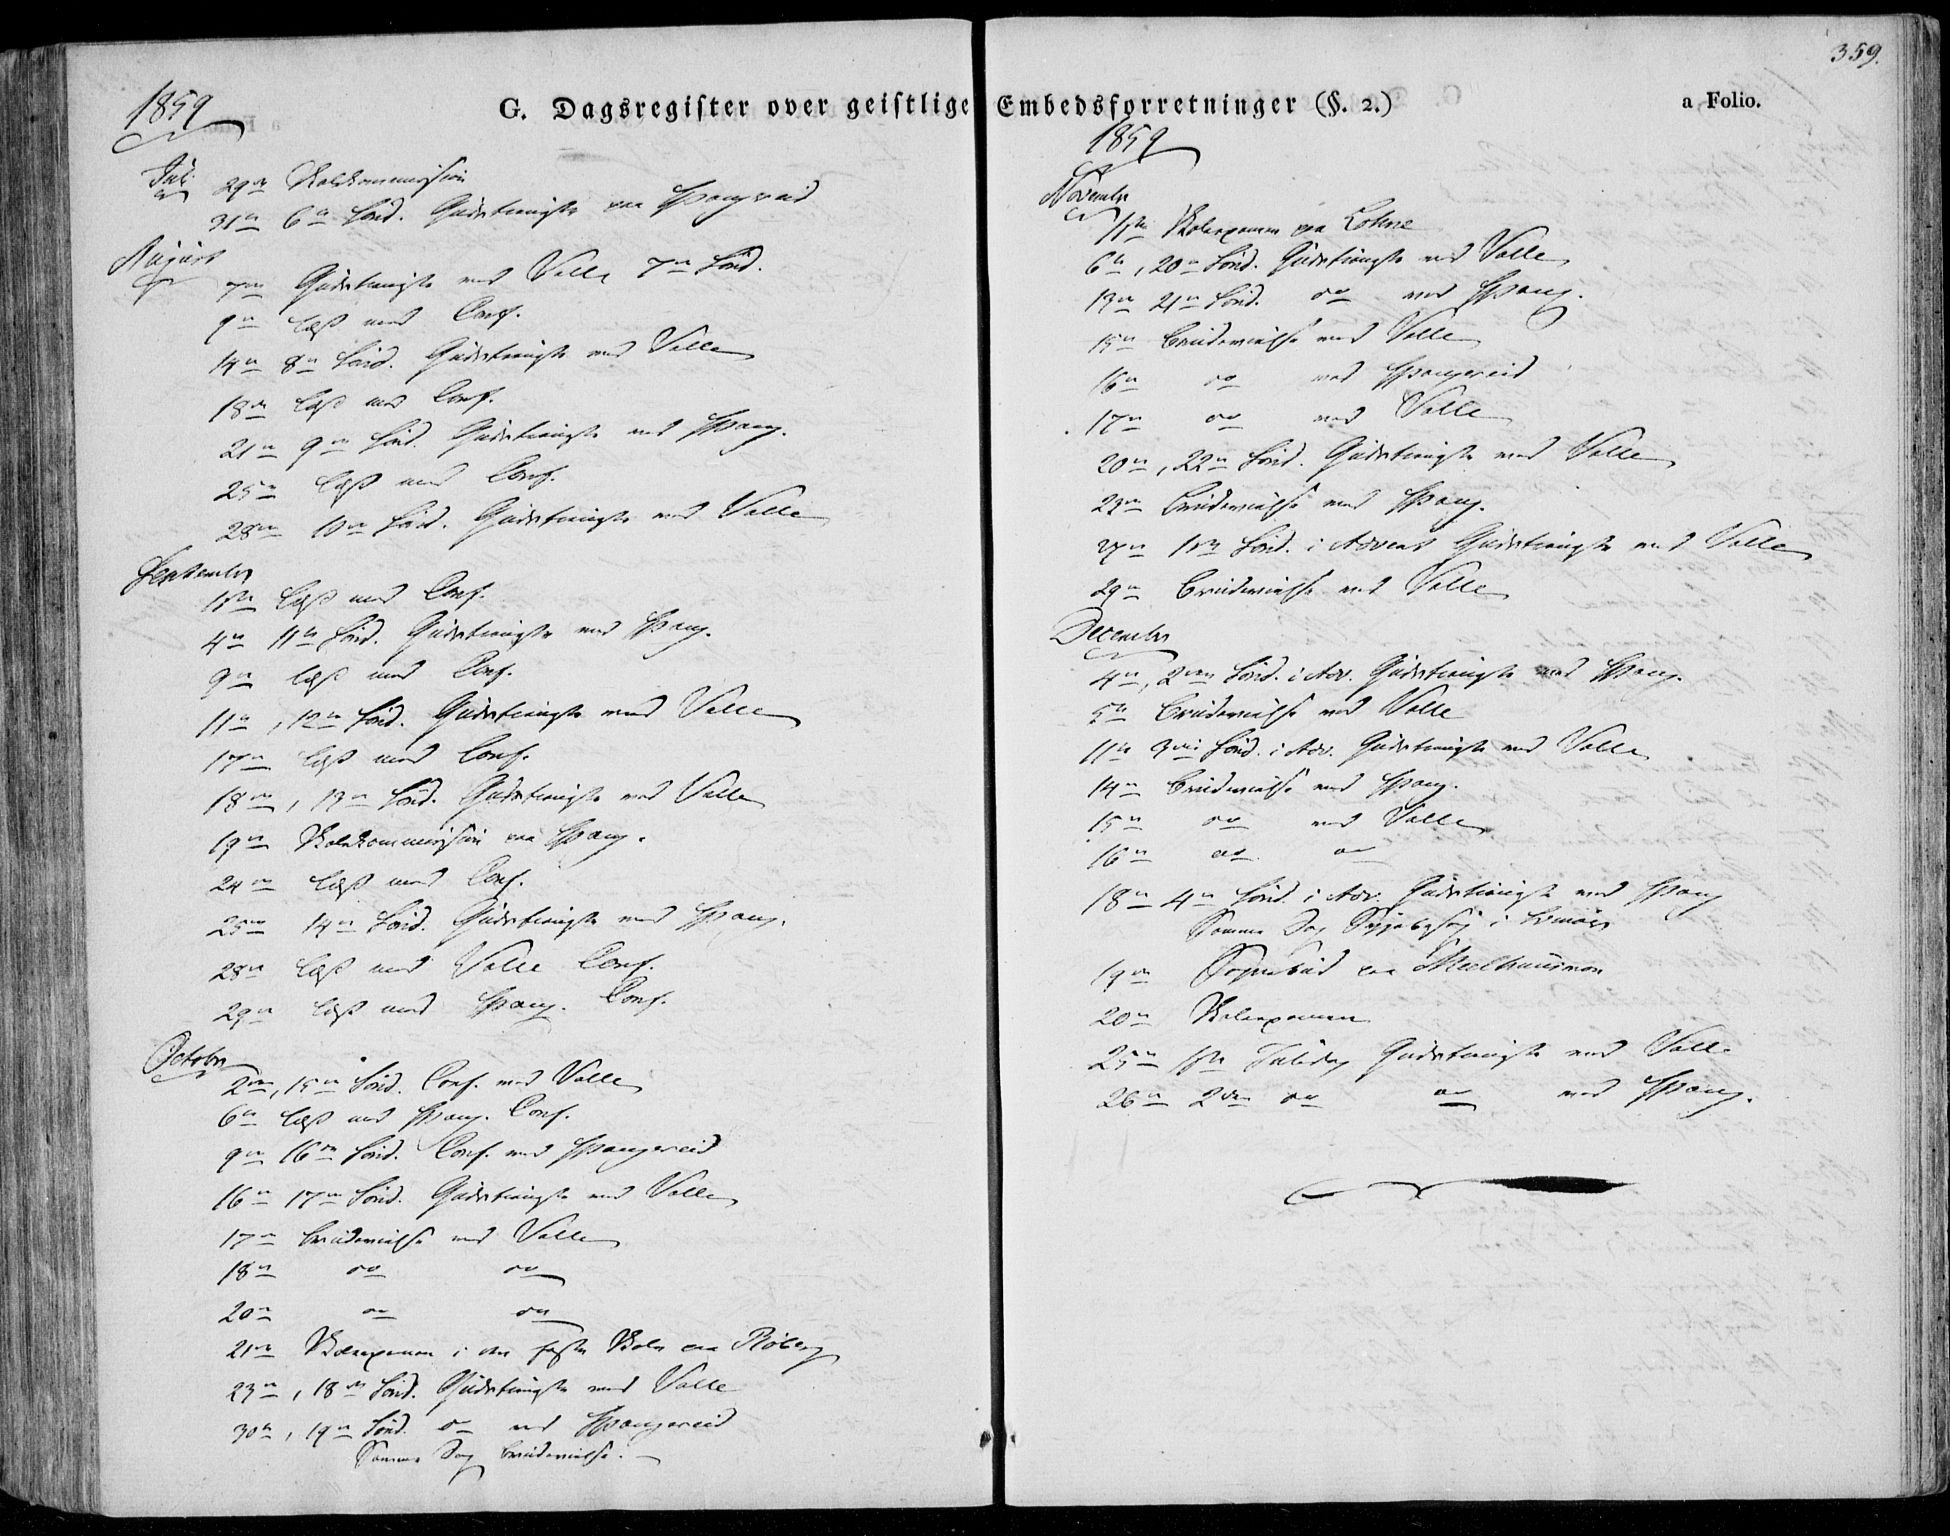 G. Dagsregister over geistlige Embedsforretninger (§. 2.)
a Folio.
359.
1859
Juli 29de Skolekommission
31te 6te Sønd. Gudstieneste paa Spangereid
August
7de Gudstieneste ved Valle 7de Sønd.
9de læst med Conf.
14de 8de Sønd. Gudstieneste ved Valle
18de læst med Conf.
21de 9de Sønd. Gudstieneste ved Spang.
25de læst med Conf.
28de 10de Sønd. Gudstieneste ved Valle
September
1ste læst med Conf.
4de 11te Sønd. Gudstieneste ved Spang.
9de læst med Conf.
11te, 12te Sønd. Gudstieneste ved Valle
17de læst med Conf.
18de, 13de Sønd. Gudstieneste ved Valle
19de Skolekommission paa Spang.
24de læst med Conf.
25de 14de Sønd. Gudstieneste ved Spang.
28de læst med Valle Conf.
29de læst med Spang. Conf.
October
2den, 15de Sønd. Conf. ved Valle
6te læst med Spang. Conf.
9de 16de Sønd. Conf. ved Spangereid
16de 17de Sønd. Gudstieneste ved Valle
17de Brudevielse ved Valle
18de do do
20de do do
21de Skoleexamen i den faste Skole paa Røberg
23de, 18de Sønd. Gudstieneste ved Valle
30te, 19de Sønd. do ved Spangereid
Samme Dag Brudevielse.
1859
November
1ste Skoleexamen paa Lohne
6te, 20de Sønd. Gudstieneste ved Valle
13de 21de Sønd. do ved Spang.
15de Brudevielse ved Valle
16de do ved Spangereid
17de do ved Valle
20de, 22de Sønd. Gudstieneste ved Valle
23de Brudevielse ved Spang.
27de 1ste Sønd. i Advent Gudstieneste ved Valle
29de Brudevielse ved Valle
December
4de, 2den Sønd. i Adv. Gudstieneste ved Spang.
5te Brudevielse ved Valle
11te 3die Sønd. i Adv. Gudstieneste ved Valle
14de Brudevielse ved Spang.
15de do ved Valle
16de do do
18de 4de Sønd. i Adv. Gudstieneste ved Spang
Samme Dag Sygebesøg i
19de Sognebud paa
20de Skoleexamen
25de 1ste Juledag Gudstieneste ved Valle
26de 2den do do ved Spang.